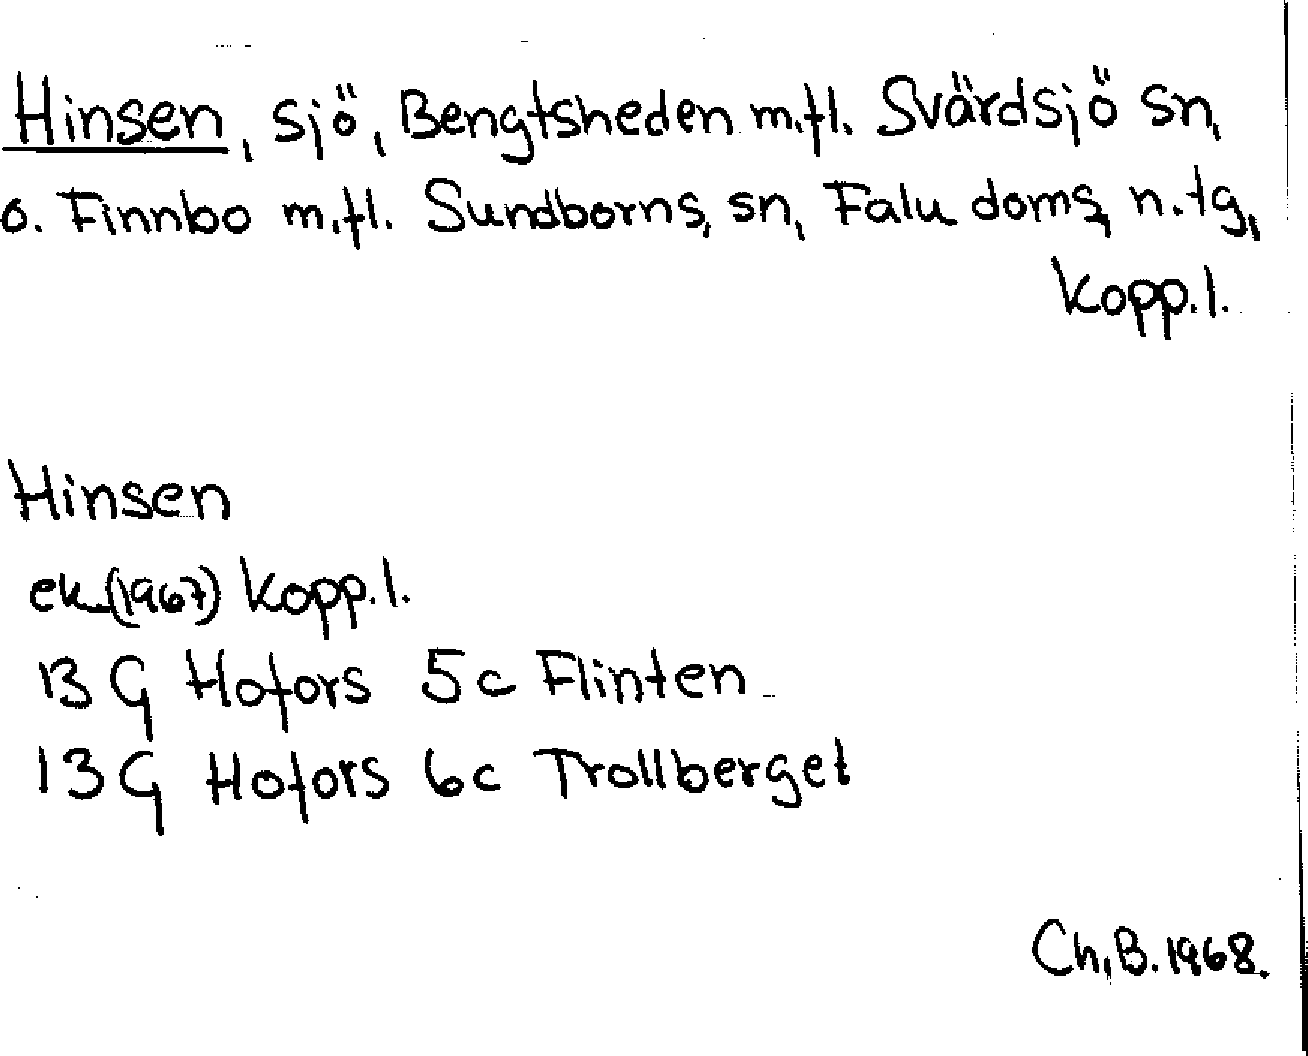 Hinsen, sjö, Bengtsheden m.fl. Svärdsjö sn,
o. Finnbo m.fl. Sundborns, sn, Falu doms, n. tg,
Kopp. l.
Hinsen
ek.(1967) Kopp. l.
13 G Hofors 5c Flinten
13 G Hofors 6c Trollberget
Ch.B. 1968.